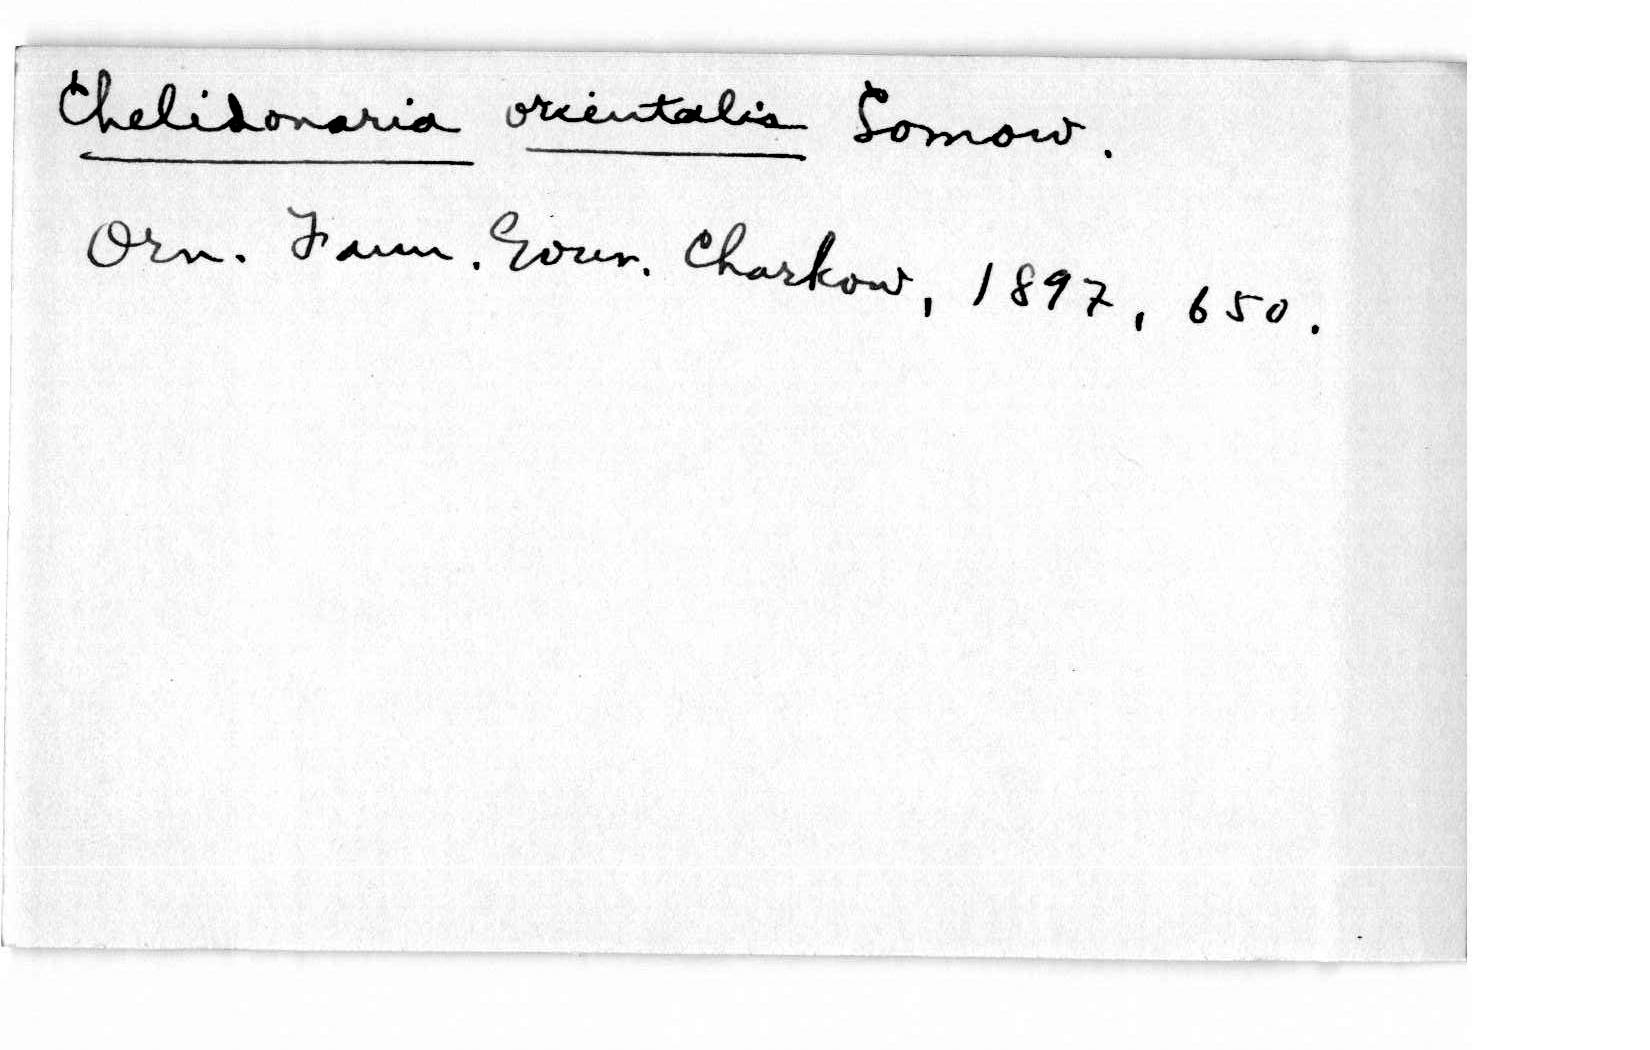 Chelidonaria orientalis Somow.
Orn. Faun. Gouv. Charkow, 1897, 650.